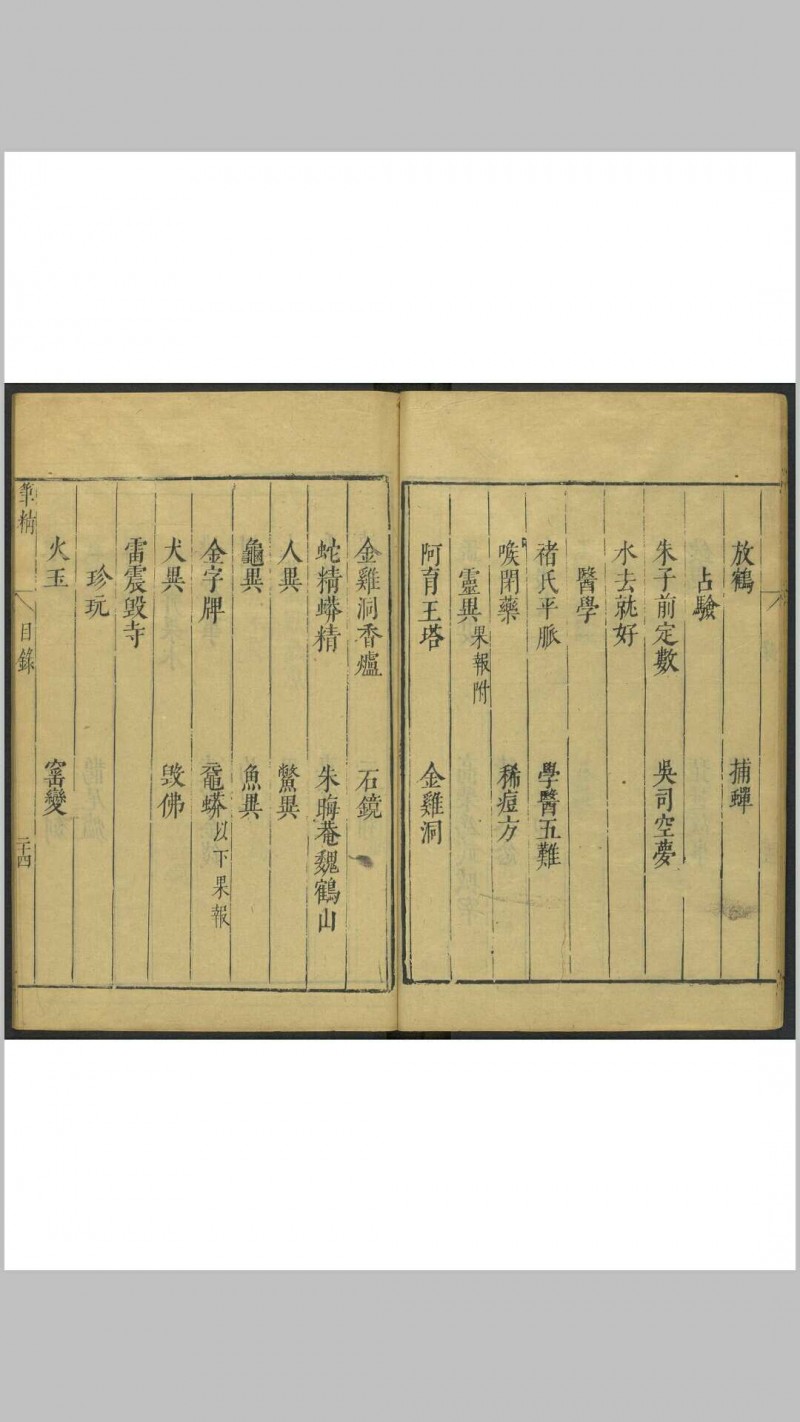 放鶴　捕蟬
占驗
朱子前定數　吳司空夢
水去就好
醫學
褚氏平脈　學醫五難
喉閉藥　稀痘方
靈異果報附
阿育王塔　金雞洞
金雞洞香爐　石鏡
蛇精蟒精　朱晦菴魏鶴山
人異　鱉異
龜異　魚異
金字牌　黿蟒以下果報
犬異　毀佛
雷震毀寺
珍玩
火玉　窰變
筆精　目錄　二十四